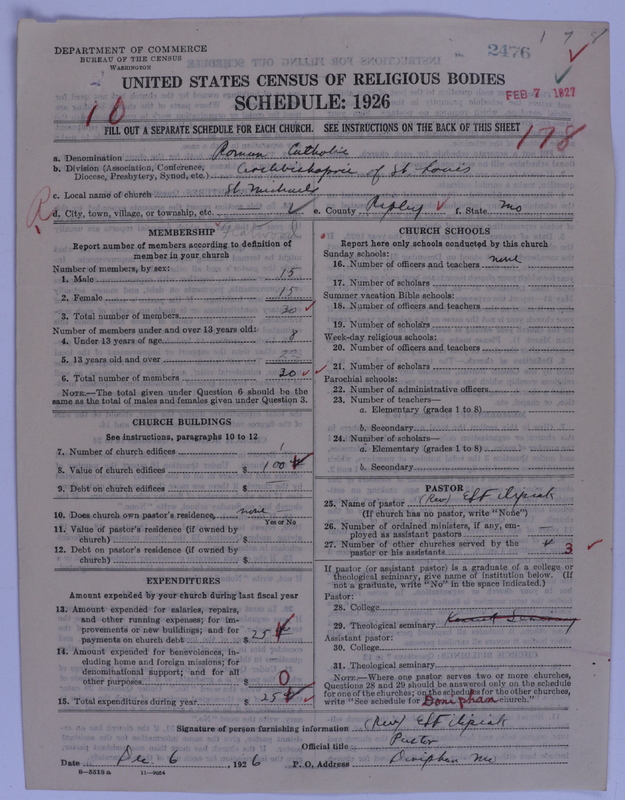 1 7 8
DEPARTMENT OF COMMERCE
BUREAU OF THE CENSUS
WASHINGTON
2476
FEB 7 1927
UNITED STATES CENSUS OF RELIGIOUS BODIES
SCHEDULE: 1926
10
FILL OUT A SEPARATE SCHEDULE FOR EACH CHURCH. SEE INSTRUCTIONS ON THE BACK OF THIS SHEET
178
a. Denomination Roman Catholic
b. Division (Association, Conference, Diocese, Presbytery, Synod, etc.) Archbishopric of St Louis
c. Local name of church St Michaels
R d. City, town, village, or township, etc. e. County Ripley f. State Mo
MEMBERSHIP
Report number of members according to definition of
member in your church
Number of members, by sex:
1. Male 15
2. Female 15
3. Total number of members 30
Number of members under and over 13 years old:
4. Under 13 years of age 8
5. 13 years old and over 22
6. Total number of members 30
NOTE.—The total given under Question 6 should be the
same as the total of males and females given under Question 3.
CHURCH BUILDINGS
See instructions, paragraphs 10 to 12
7. Number of church edifices 1
8. Value of church edifices $ 100
9. Debt on church edifices $
10. Does church own pastor's residence none
Yes or No
11. Value of pastor's residence (if owned by
church) $
12. Debt on pastor's residence (if owned by
church) $
EXPENDITURES
Amount expended by your church during last fiscal year
13. Amount expended for salaries, repairs,
and other running expenses; for im-
provements or new buildings; and for
payments on church debt $ 25
14. Amount expended for benevolences, in-
cluding home and foreign missions; for
denominational support; and for all
other purposes $ 0
15. Total expenditures during year $ 25
CHURCH SCHOOLS
Report here only schools conducted by this church
Sunday schools:
16. Number of officers and teachers none
17. Number of scholars
Summer vacation Bible schools:
18. Number of officers and teachers
19. Number of scholars
Week-day religious schools:
20. Number of officers and teachers
21. Number of scholars
Parochial schools:
22. Number of administrative officers
23. Number of teachers—
a. Elementary (grades 1 to 8)
b. Secondary
24. Number of scholars—
a. Elementary (grades 1 to 8)
b. Secondary
PASTOR
25. Name of pastor (Rev)
(If church has no pastor, write "None")
26. Number of ordained ministers, if any, em-
ployed as assistant pastors
27. Number of other churches served by the
pastor or his assistants 4 3
If pastor (or assistant pastor) is a graduate of a college or
theological seminary, give name of institution below. (If
not a graduate, write "No" in the space indicated.)
Pastor:
28. College
29. Theological seminary Kenrick Seminary
Assistant pastor:
30. College
31. Theological seminary
NOTE.—Where one pastor serves two or more churches,
Questions 28 and 29 should be answered only on the schedule
for one of the churches; on the schedules for the other churches,
write "See schedule for Doniphan church."
Signature of person furnishing information (Rev)
Official title Pastor
Date Dec 6 , 1926 P. O. Address Doniphan Mo
8—5518 a 11—9054